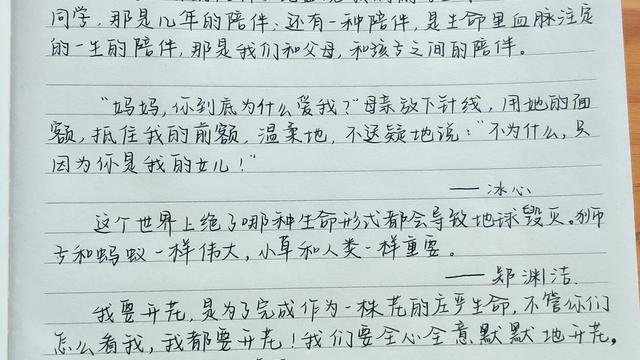 同学，那是几年的陪伴；还有一种陪伴，是生命里血脉注定
的一生的陪伴，那是我们和父母，和孩子之间的陪伴。
“妈妈，你到底为什么爱我？”母亲放下针线，用她的面
额，抵住我的前额，温柔地，不迟疑地说：“不为什么，只
因为你是我的女儿！”
——冰心
这个世界上绝了哪种生命形式都会导致地球毁灭。狮
子和蚂蚁一样伟大，小草和人类一样重要。
——郑渊洁.
我要开花，是为了完成作为一株花的庄严生命，不管你们
怎么看我，我都要开花！我们要全心全意默默地开花，